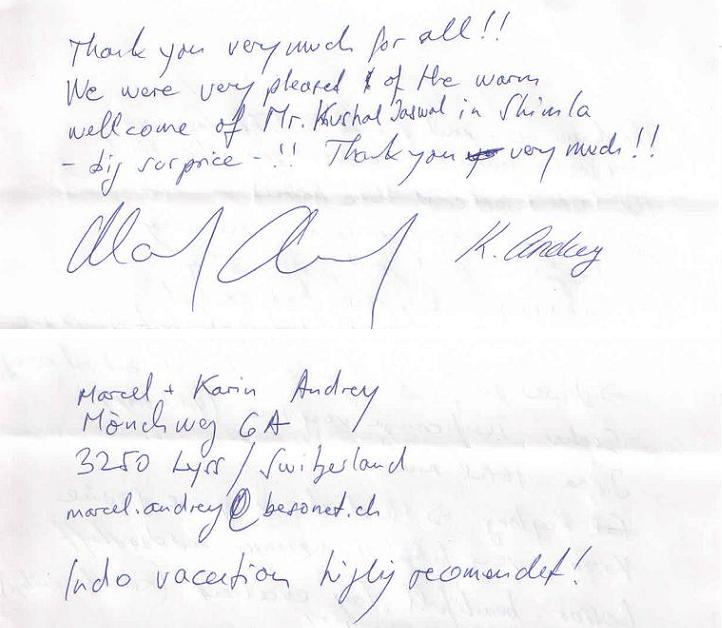 Thank you very much for all!!
We were very pleased of the warm
wellcome of Mr. Khushal Jaswal in Shimla
- big surprice - !! Thank you very much!!
K. Andrey
Marcel + Karin Andrey
Mönchweg 6A
3250 Lyss / Switzerland
marcel.andrey@besonet.ch
Indo vacation highly recomendet!